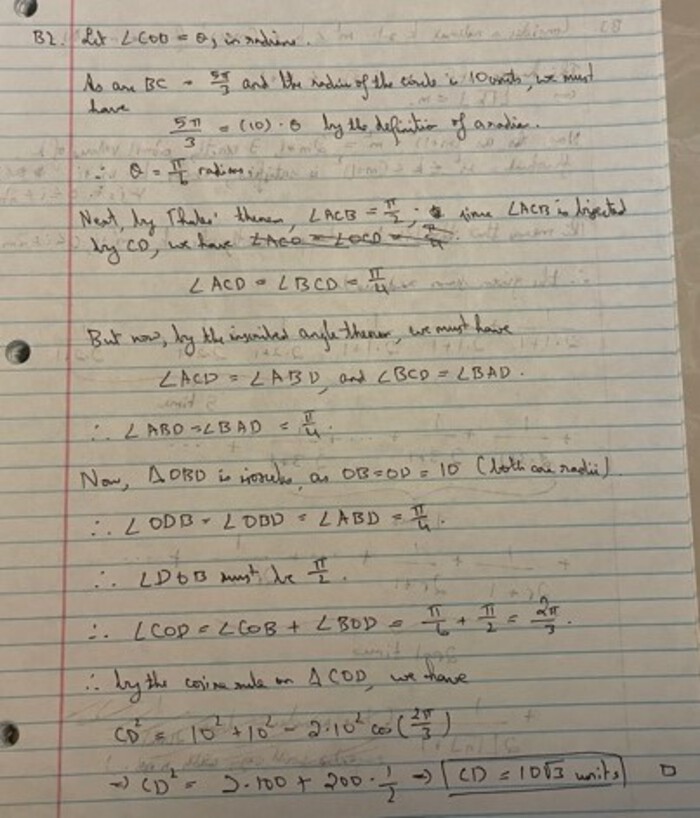 B2. Let ∠COB = θ, in radians.
As arc BC = 5π/3 and the radius of the circle is 10 units, we must
have
5π/3 = (10) · θ by the definition of a radian.
∴ θ = π/6 radians.
Next, by Thales' theorem, ∠ACB = π/2; since ∠ACB is bisected
by CD, we have ∠ACO = ∠OCD = π/4.
∠ACD = ∠BCD = π/4
But now, by the inscribed angle theorem, we must have
∠ACD = ∠ABD, and ∠BCD = ∠BAD.
∴ ∠ABD = ∠BAD = π/4.
Now, ΔOBD is isosceles, as OB = OD = 10 (both are radii)
∴ ∠ODB = ∠OBD = ∠ABD = π/4.
∴ ∠DOB must be π/2.
∴ ∠COD = ∠COB + ∠BOD = π/6 + π/2 = 2π/3.
∴ by the cosine rule on ΔCOD, we have
CD² = 10² + 10² - 2·10² cos(2π/3)
→ CD² = 2·100 + 200 · 1/2 → CD = 10√3 units □